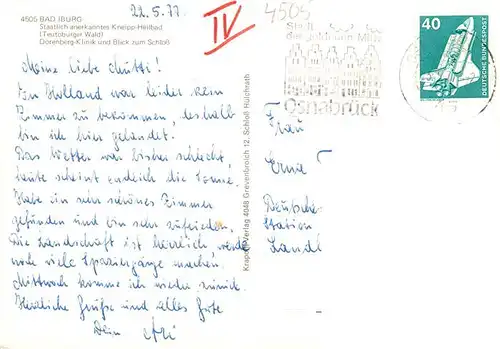 22.5.77
4505 BAD IBURG
Staatlich anerkanntes Kneipp-Heilbad
(Teutoburger Wald)
Dörenberg-Klinik und Blick zum Schloß
IV
4505
Osnabrück
40
DEUTSCHE BUNDESPOST
Meine liebe Mutti!
In Holland war leider kein
Zimmer zu bekommen, deshalb
bin ich hier gelandet.
Das Wetter war bisher schlecht,
heute scheint endlich die Sonne.
Habe ein sehr schönes Zimmer
gefunden und bin sehr zufrieden.
Die Landschaft ist herrlich, werde
noch viele Spaziergänge machen.
Mittwoch komme ich wieder zurück.
Herzliche Grüße und alles Gute
Dein
Krapohl-Verlag 4048 Grevenbroich 12, Schloß Hülchrath
Frau
Erna
Deutsche
Station